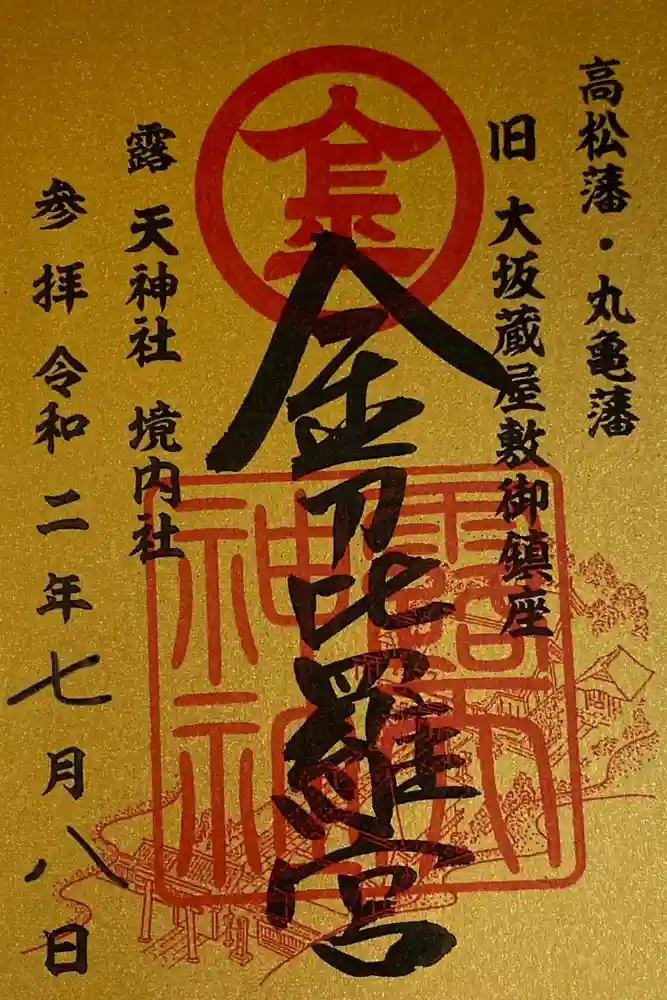 高松藩・丸亀藩
旧 大坂蔵屋敷御鎮座
金
金刀比羅宮
露天神社
露 天神社 境内社
参拝 令和二年七月八日